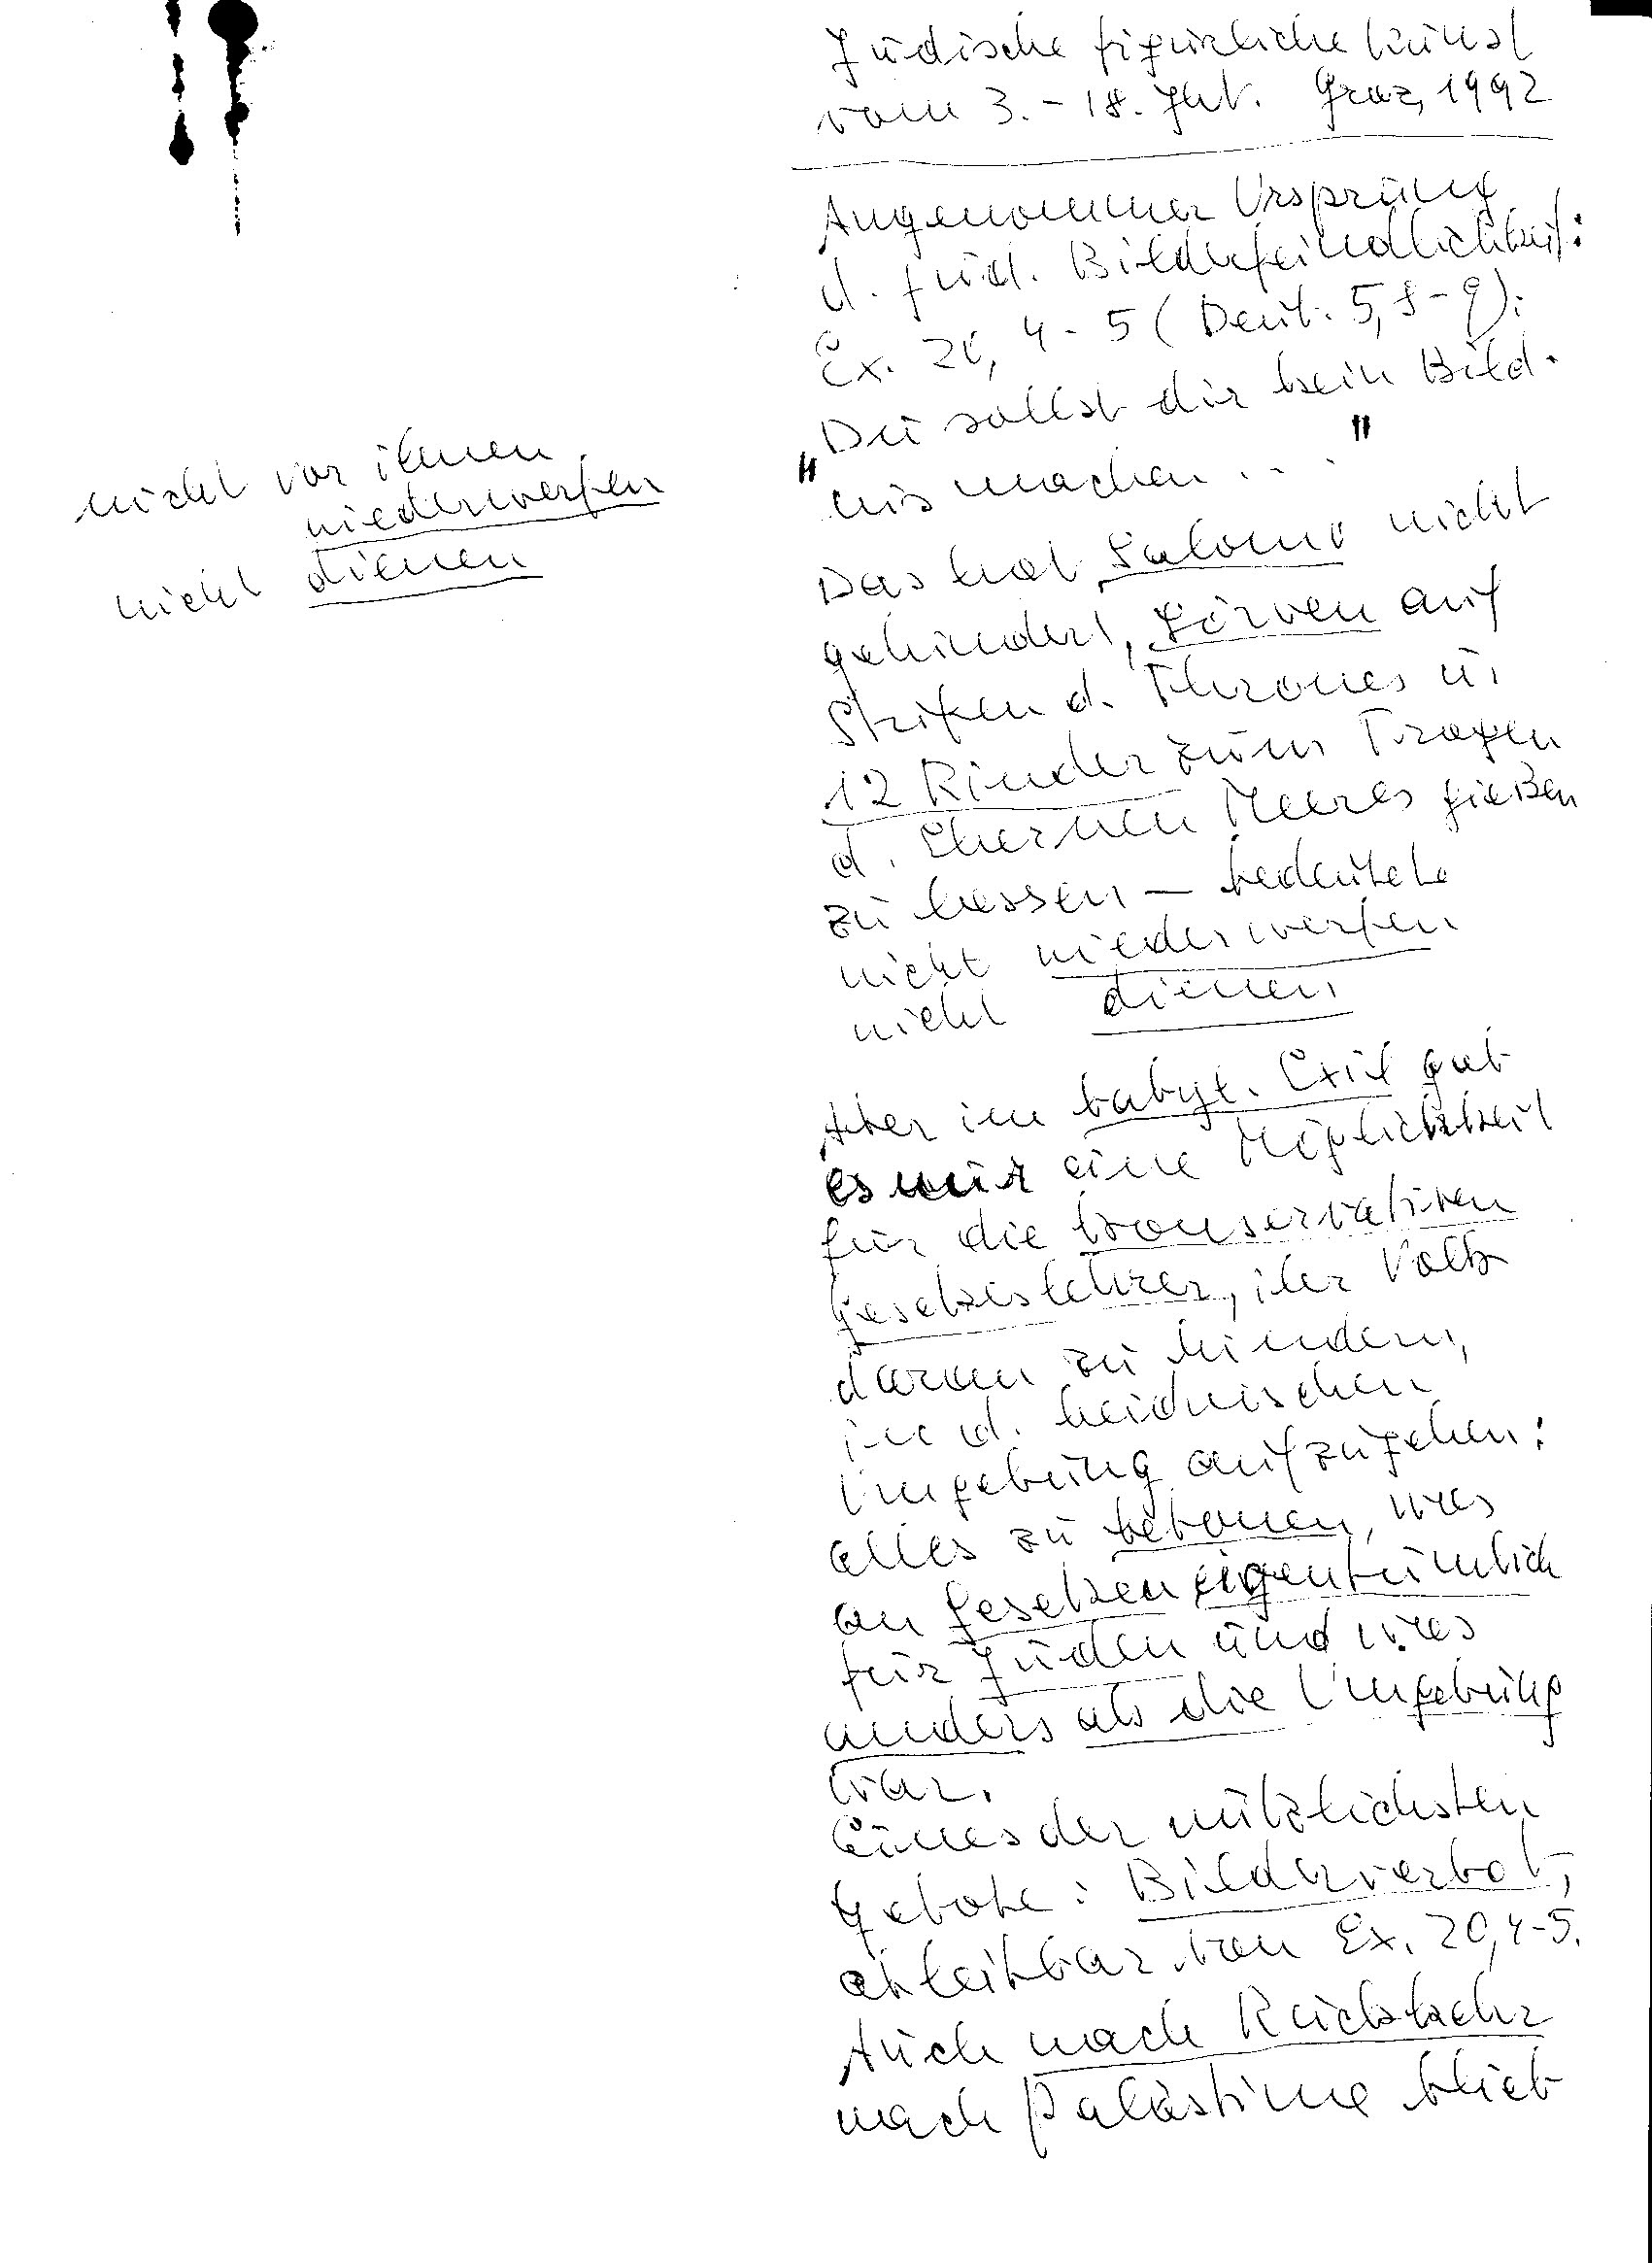 Jüdische figürliche Kunst
vom 3.-18. Jht. Graz, 1992
Angenommener Ursprung
d. jüd. Bilderfeindlichkeit:
Ex. 20, 4-5 (Deut. 5, 8-9):
"Du sollst dir kein Bild-
nis machen ..."
nicht vor ihnen
niederwerfen
nicht dienen
Das hat Salomo nicht
gehindert, Löwen auf
Stufen d. Thrones u.
12 Rinder zum Tragen
d. Ehernen Meeres gießen
zu lassen – bedeutete
nicht niederwerfen
nicht dienen
Aber im babyl. Exil gab
es nur eine Möglichkeit
für die konservativen
Gesetzeslehrer, ihr Volk
daran zu hindern,
in d. heidnischen
Umgebung aufzugehen:
alles zu betonen, was
an Gesetzen eigentümlich
für Juden und was
anders als die Umgebung
war.
Eines der nützlichsten
Gebote: Bilderverbot,
ableitbar von Ex. 20, 4-5.
Auch nach Rückkehr
nach Palästina blieb